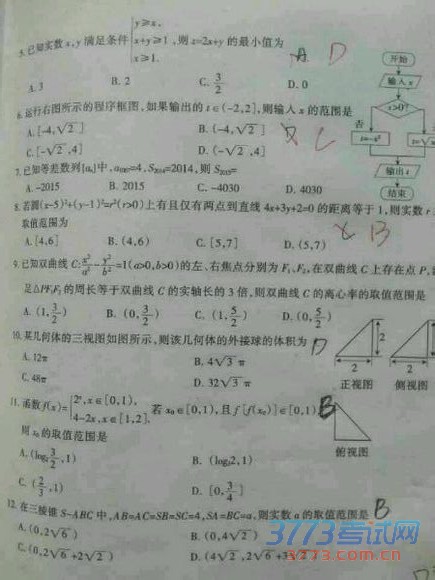 y≥x,
5. 已知实数x,y 满足条件 x+y≥1 , 则 z=2x+y 的最小值为
x≥1.
A D
A. 3 B. 2 C. 3/2 D. 0
6. 运行右图所示的程序框图,如果输出的 t∈(-2,2],则输入 x 的范围是
A. [-4,√2] B. (-4,√2]
C. [-√2,4] D. (-√2,4]
X C
开始
输入 x
t>0?
否
输出 t
结束
7. 已知等差数列{aₙ}中, =4, S₂₀₁₄=2014, 则 S₂₀₁₅=
A. -2015 B. 2015 C. -4030 D. 4030
8. 若圆(x-5)²+(y-1)²=r²(r>0)上有且仅有两点到直线 4x+3y+2=0 的距离等于 1,则实数 r
取值范围为
A. [4,6] B. (4,6) C. [5,7] D. (5,7)
X B
9. 已知双曲线 C: x²/a² - y²/b² =1(a>0,b>0)的左、右焦点分别为 F₁、F₂, 在双曲线 C 上存在点 P,
足△PF₁F₂ 的周长等于双曲线 C 的实轴长的 3 倍,则双曲线 C 的离心率的取值范围是
A. (1, 3/2) B. (0, 3/2) C. (1, 5/2) D. (0, 5/2)
10. 某几何体的三视图如图所示,则该几何体的外接球的体积为
D
A. 12π B. 4√3 π
C. 48π D. 32√3 π
2 2
2 2
正视图 侧视图
俯视图
11. 函数 f(x)= 2ˣ, x∈[0,1),
4-2x, x∈[1,2]. 若 x₀∈[0,1), 且 f[f(x₀)]∈[0,1)
B
则 x₀ 的取值范围是
A. (log₂ 3/2 ,1) B. (log₃2,1)
C. ( 2/3 ,1) D. [0, 3/4 ]
12. 在三棱锥 S-ABC 中, AB=AC=SB=SC=4, SA=BC=a, 则实数 a 的取值范围是
B
A. (0,2√6) B. (0,4√2)
C. (0,2√6+2√2) D. (4√2,2√6+
3773考试网
3773.com.cn